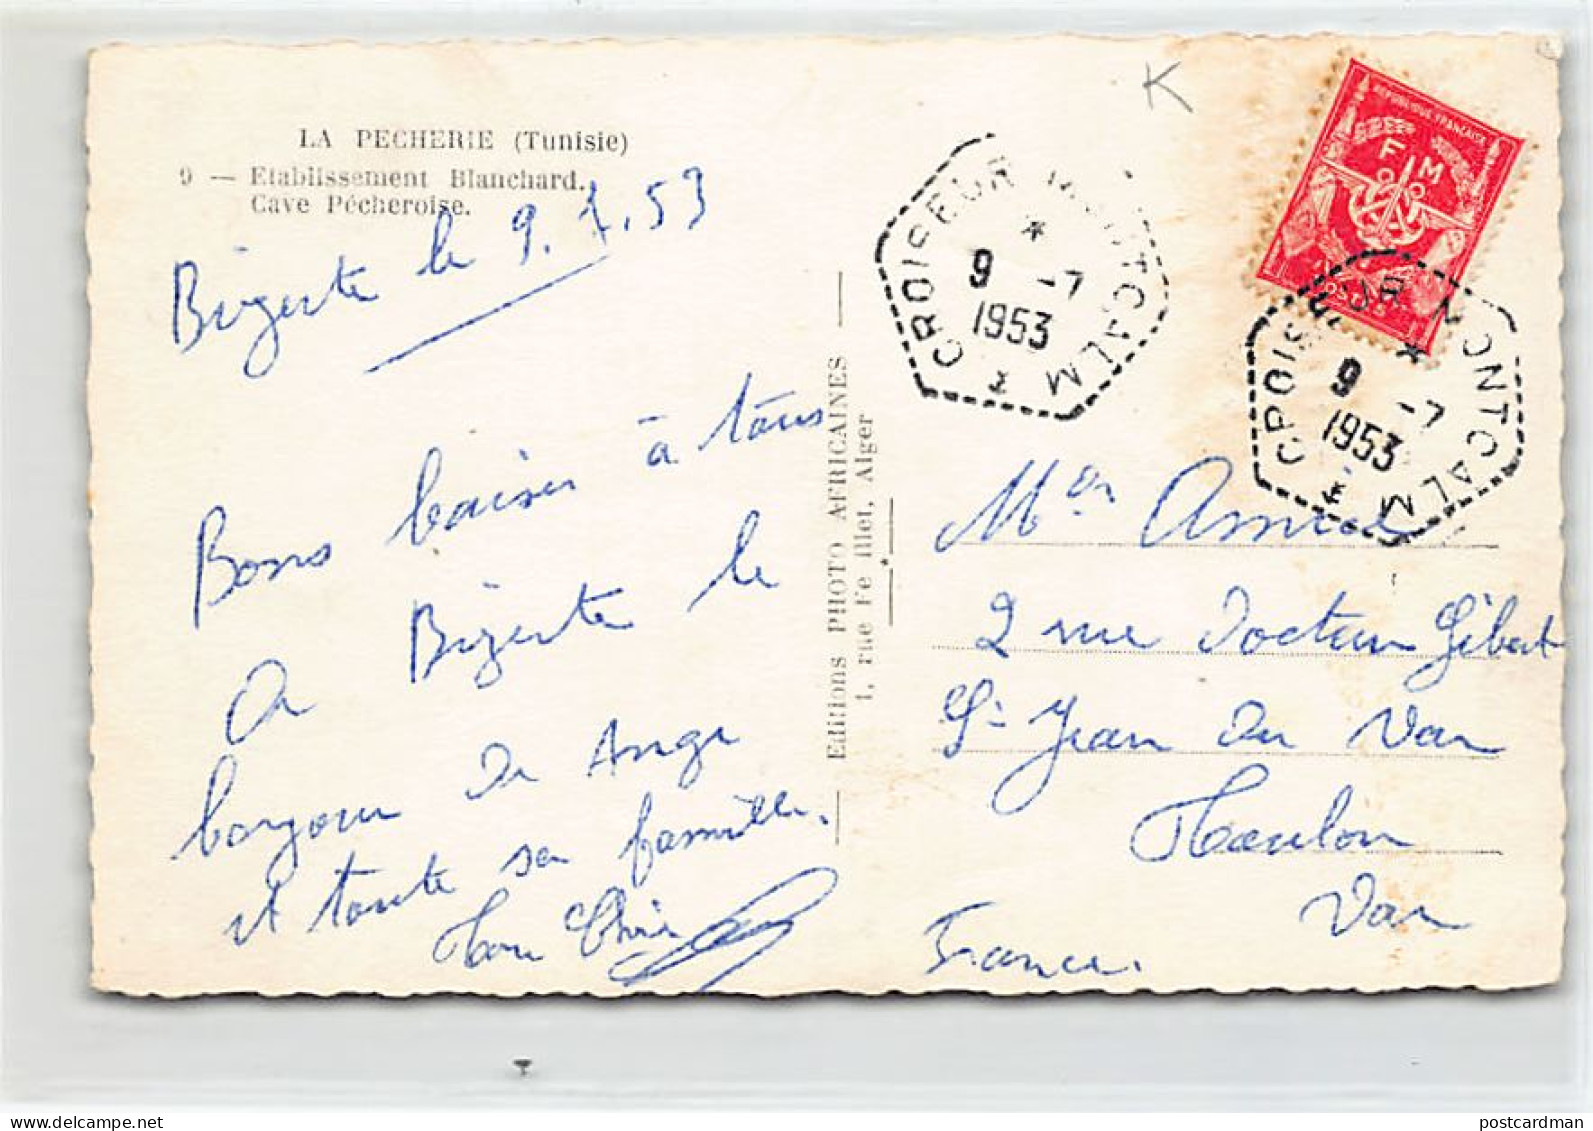 LA PECHERIE (Tunisie)
9 — Etablissement Blanchard.
Cave Pécheroise.
Bizerte le 9.7.53
Bons baiser à tous
De Bizerte le
bonjour De Ange
et toute sa famille.
Editions PHOTO AFRICAINES
1, rue Fe illet, Alger
K
CROISEUR MONTCALM
9 -7
1953
REPUBLIQUE FRANÇAISE
F M
POSTES
CROISEUR MONTCALM
9 -7
1953
2 rue Docteur Gibert
St Jean Du Var
Toulon
Var
France.
postcardman